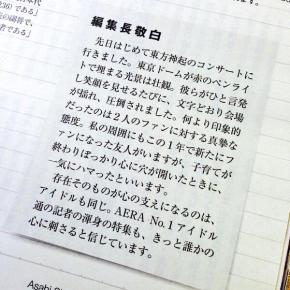 36）である」
者である」
す。
編集長敬白
先日はじめて東方神起のコンサートに
行きました。東京ドームが赤のペンライ
トで埋まる光景は壮観。彼らがひと言発
し笑顔を見せるたびに、文字どおり会場
が揺れ、圧倒されました。何より印象的
だったのは２人のファンに対する真摯な
態度。私の周囲にもこの１年で新たにフ
ァンになった友人がいますが、子育てが
終わりぽっかり心に穴が開いたときに、
一気にハマったといいます。
存在そのものが心の支えになるのは、
アイドルも同じ。AERA No.1アイドル
通の記者の渾身の特集も、きっと誰かの
心に刺さると信じています。